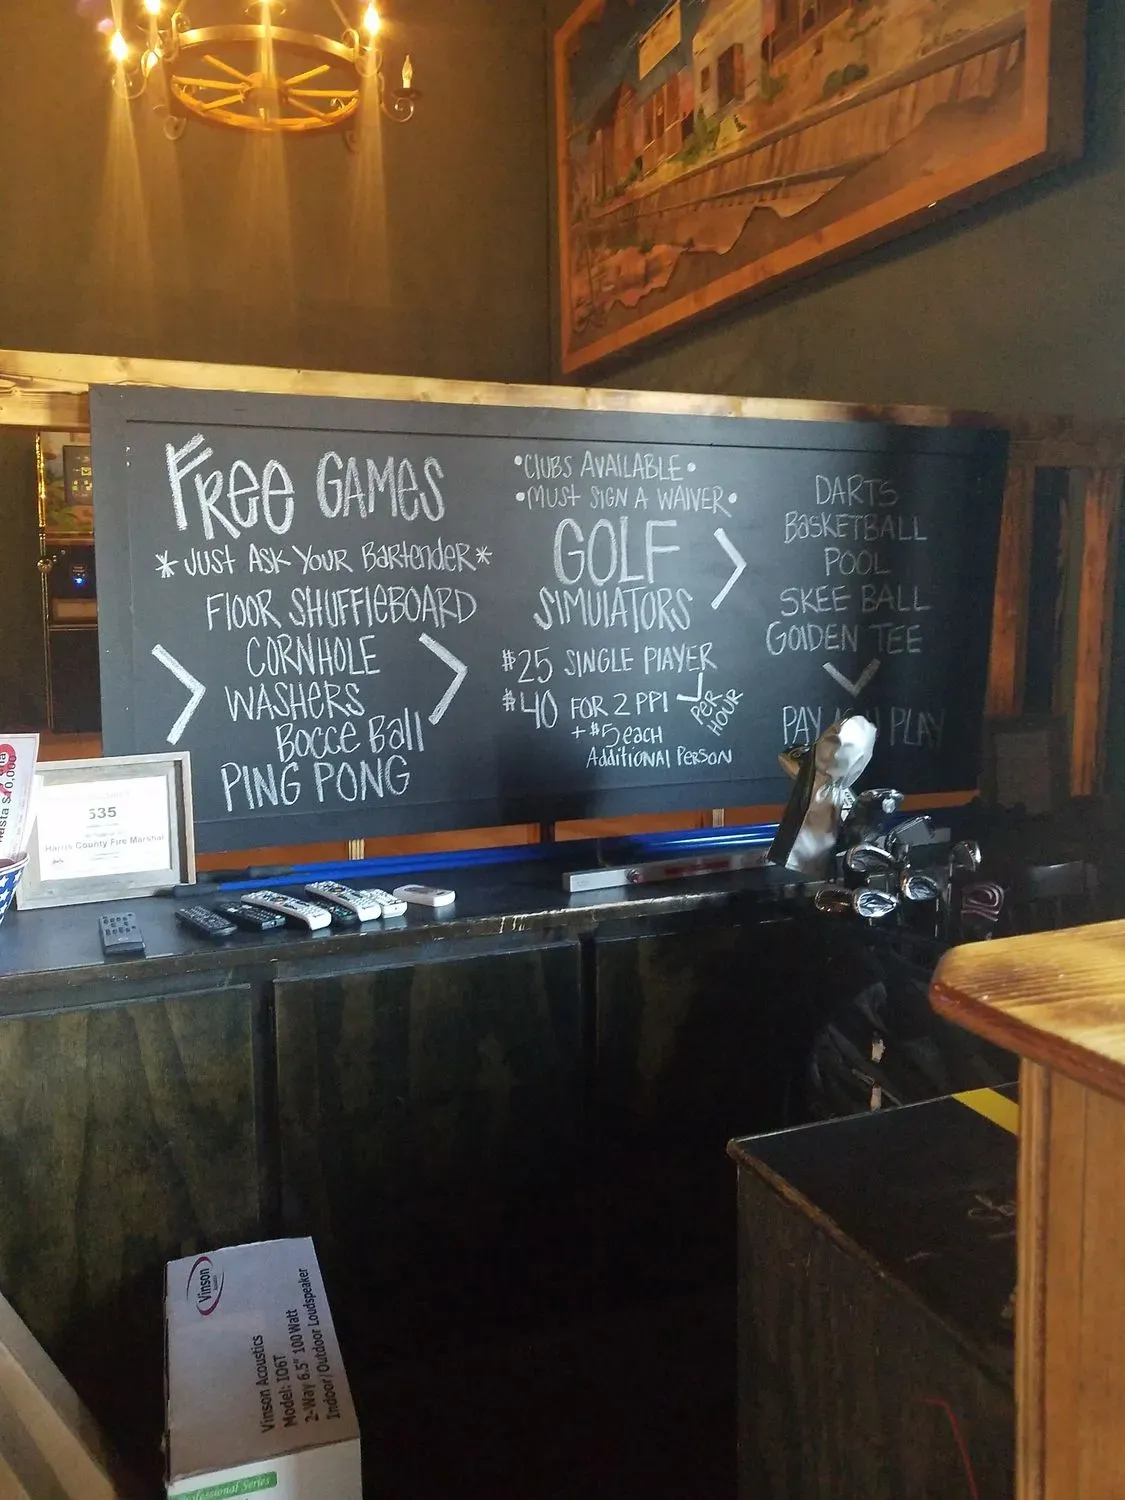 FREE GAMES
*JUST ASK YOUR BARTENDER*
FLOOR SHUFFLEBOARD
CORNHOLE
WASHERS
BOCCE BALL
PING PONG
•CLUBS AVAILABLE•
•MUST SIGN A WAIVER•
GOLF
SIMULATORS
$25 SINGLE PLAYER
$40 FOR 2 PPL
PER HOUR
+ $5 EACH
ADDITIONAL PERSON
DARTS
BASKETBALL
POOL
SKEE BALL
GOLDEN TEE
PAY PLAY
$10,000
535
Harris County Fire Marshal
Vinson
Vinson Acoustics
Model: IO6T
2-Way 6.5" 100 Watt
Indoor/Outdoor Loudspeaker
Series